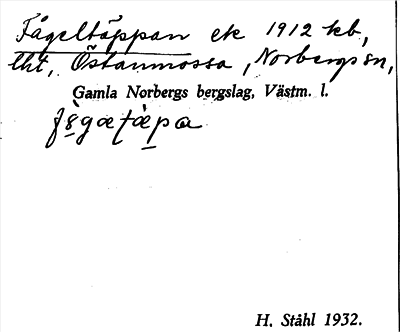 Fågeltäppan ek 1912 kb,
lht, Östanmossa, Norbergs sn,
Gamla Norbergs bergslag, Västm. l.
H. Ståhl 1932.